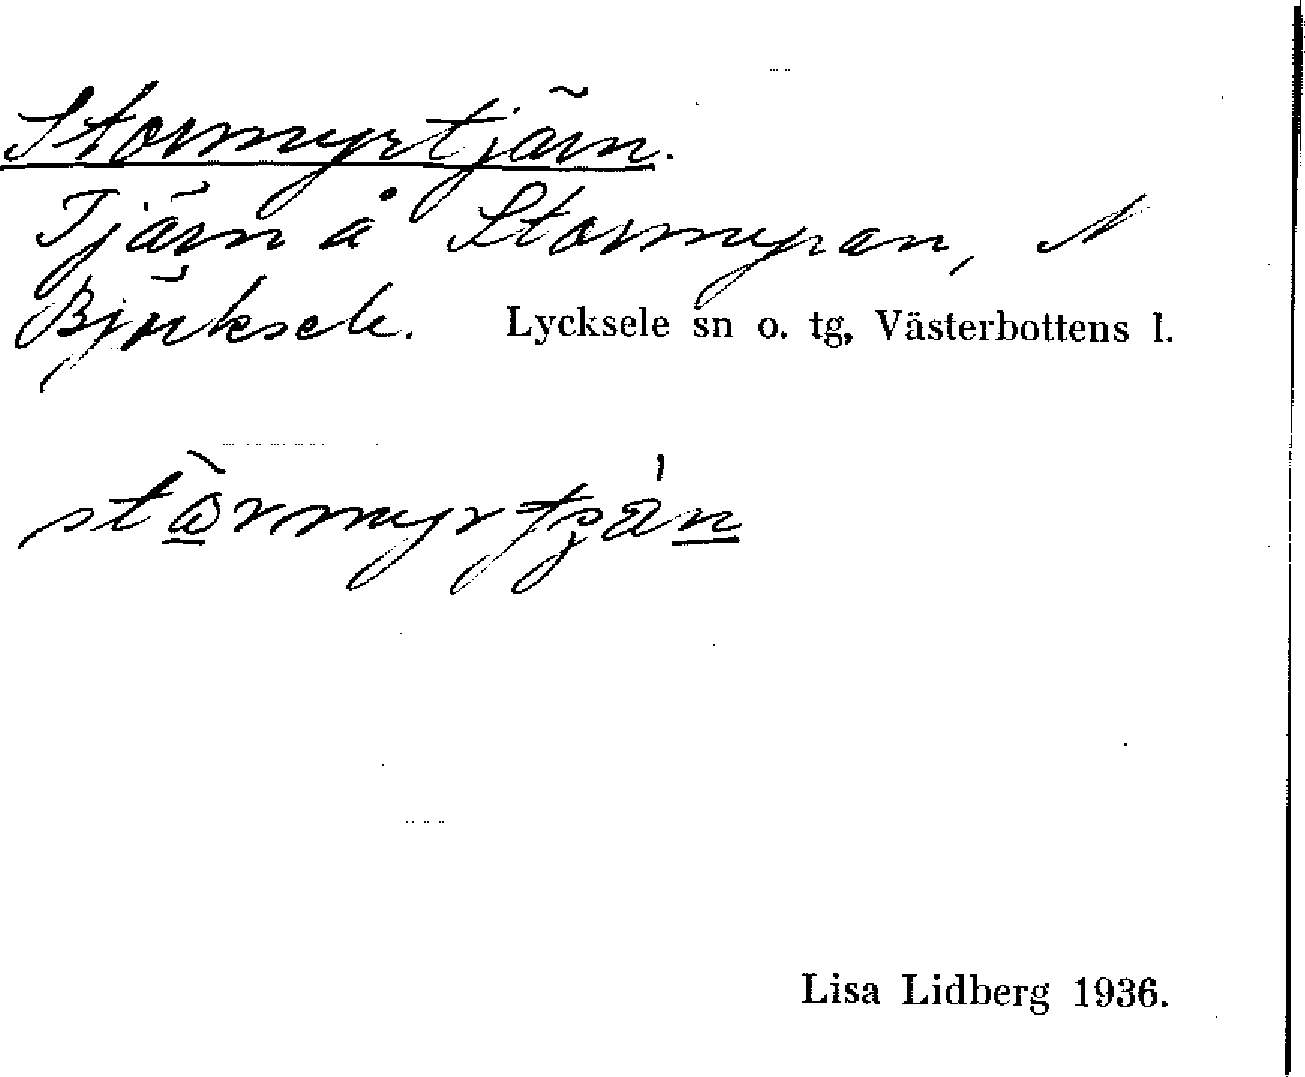 Stormyrtjärn.
Tjärn å Stormyran, N
Björksele. Lycksele sn o. tg, Västerbottens l.
Lisa Lidberg 1936.